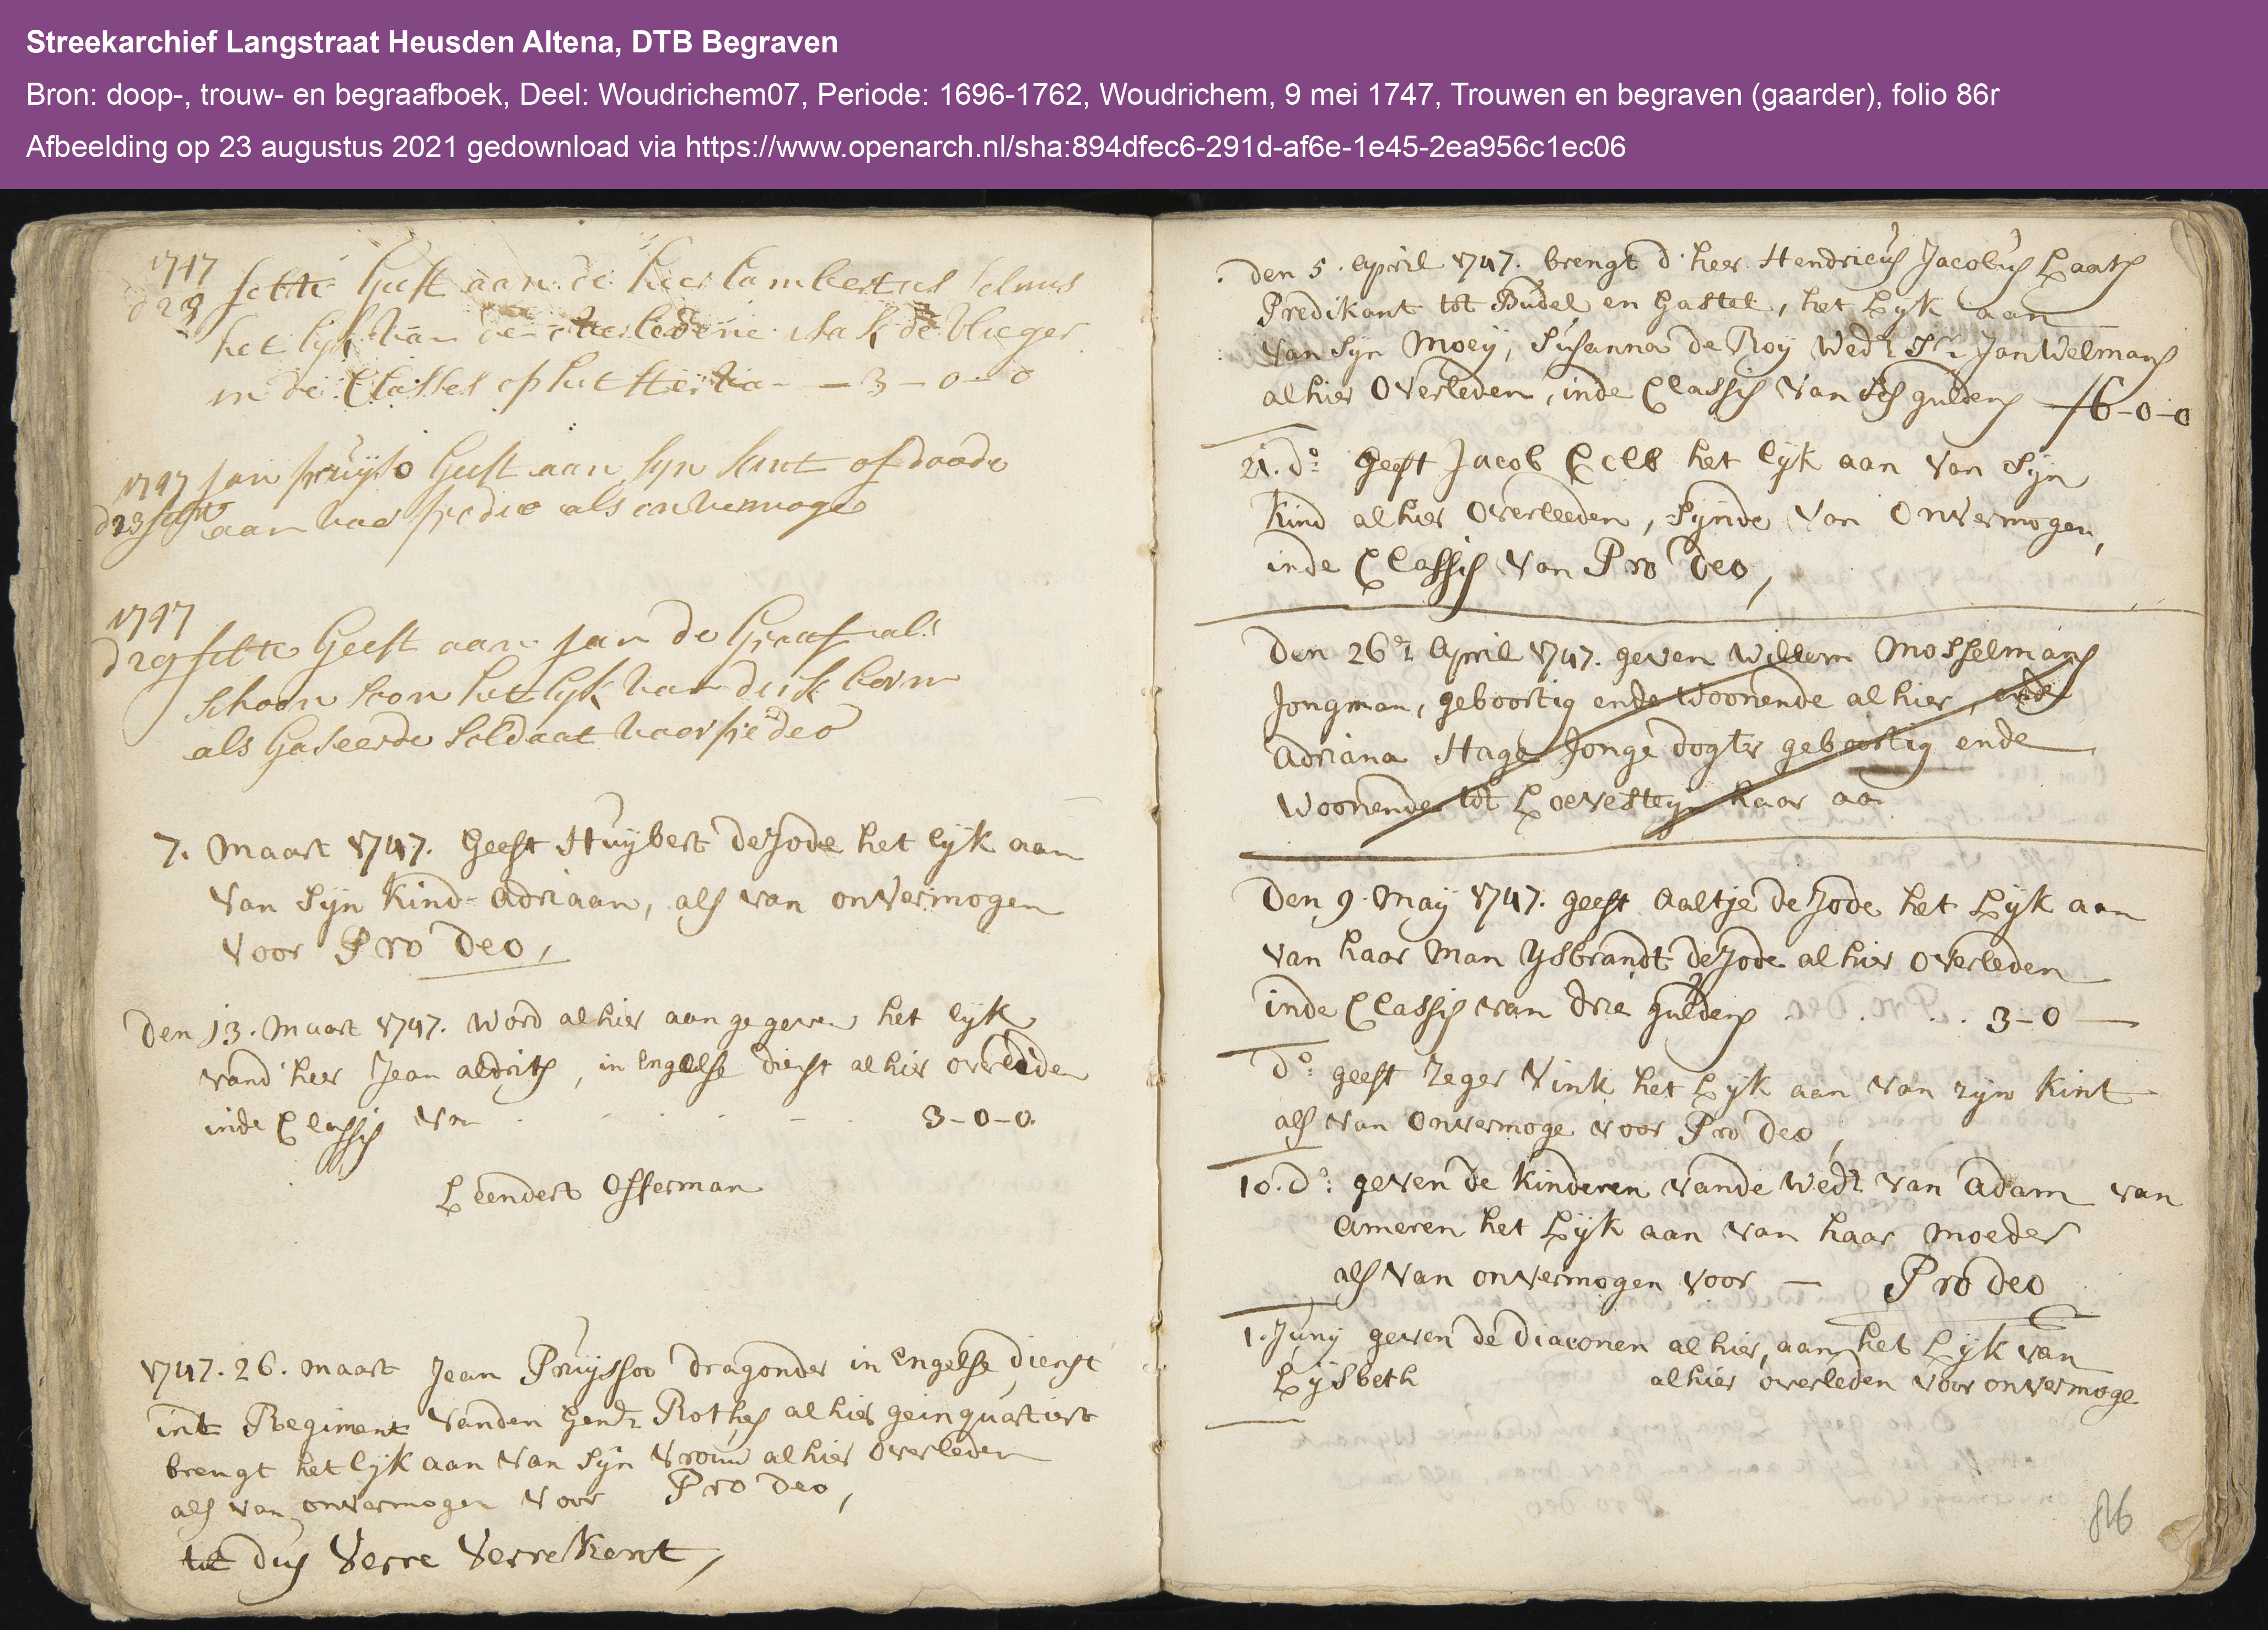 Streekarchief Langstraat Heusden Altena, DTB Begraven
Bron: doop-, trouw- en begraafboek, Deel: Woudrichem07, Periode: 1696-1762, Woudrichem, 9 mei 1747, Trouwen en begraven (gaarder), folio 86r
Afbeelding op 23 augustus 2021 gedownload via https://www.openarch.nl/sha:894dfec6-291d-af6e-1e45-2ea956c1ec06
1747
geeft aan de heer Lambertus
het lijk van de overledene de Vlieger
in de Classes op het - 3 - 0 - 0
1747 Jan geeft aan syn kint of doode
aan voor pro deo als onvermoge
1747
geeft aan Jan de Graaf als
schoon soon het lijk van dirk
als Gaseerde soldaat voor pro deo
7. Maart 1747. geeft Huybert de Jode het lijk aan
van syn kind Adriaan, als van onvermogen
voor Pro Deo,
Den 13. Maart 1747. word alhier aangegeven het lijk
vand' heer Jean , in Engelse dienst alhier overleden
inde Classis van 3-0-0.
Leendert Offerman
1747. 26. Maart Jean Pruyssoo dragonder in Engelse dienst
int Regiment vanden Genl. Rothes alhier geinquartiert
brengt het lijk aan van syn vrouw alhier overleden
als van onvermogen voor Pro Deo,
tot dus verre verrekent,
Den 5. April 1747. brengt d. heer Hendricus Jacobus Laats
Predikant tot Budel en Gastel, het Lyk aan
van syn Moey, Susanna de Roy Wedr. Sr. Jan Welmans
alhier overleden, inde Classis van ses guldens f 6-0-0
21. do. geeft Jacob het lyk aan van syn
kind alhier overleeden, synde van onvermogen,
inde Classis van Pro Deo,
Den 26r. April 1747. geven Willem Mosselmans
Jongman, geboortig ende woonende alhier, ende
Adriana Hage Jonge dogtr geboortig ende
woonende tot Loevesteyn haar aa
Den 9. May 1747. geeft Aaltje de Jode het Lijk aan
van haar man Ysbrandt de Jode alhier overleden
inde Classis van drie guldens . . . . 3-0-
do: geeft Zeger Vink het Lyk aan van zyn kint
als van onvermoge voor Pro Deo,
10. do: geven de kinderen vande Wedr. van Adam van
Ameren het Lijk aan van haar moeder
als van onvermogen voor - Pro Deo
1. Juny geven de Diaconen alhier, aan het Lyk van
Lijsbeth alhier overleden voor onvermoge
86